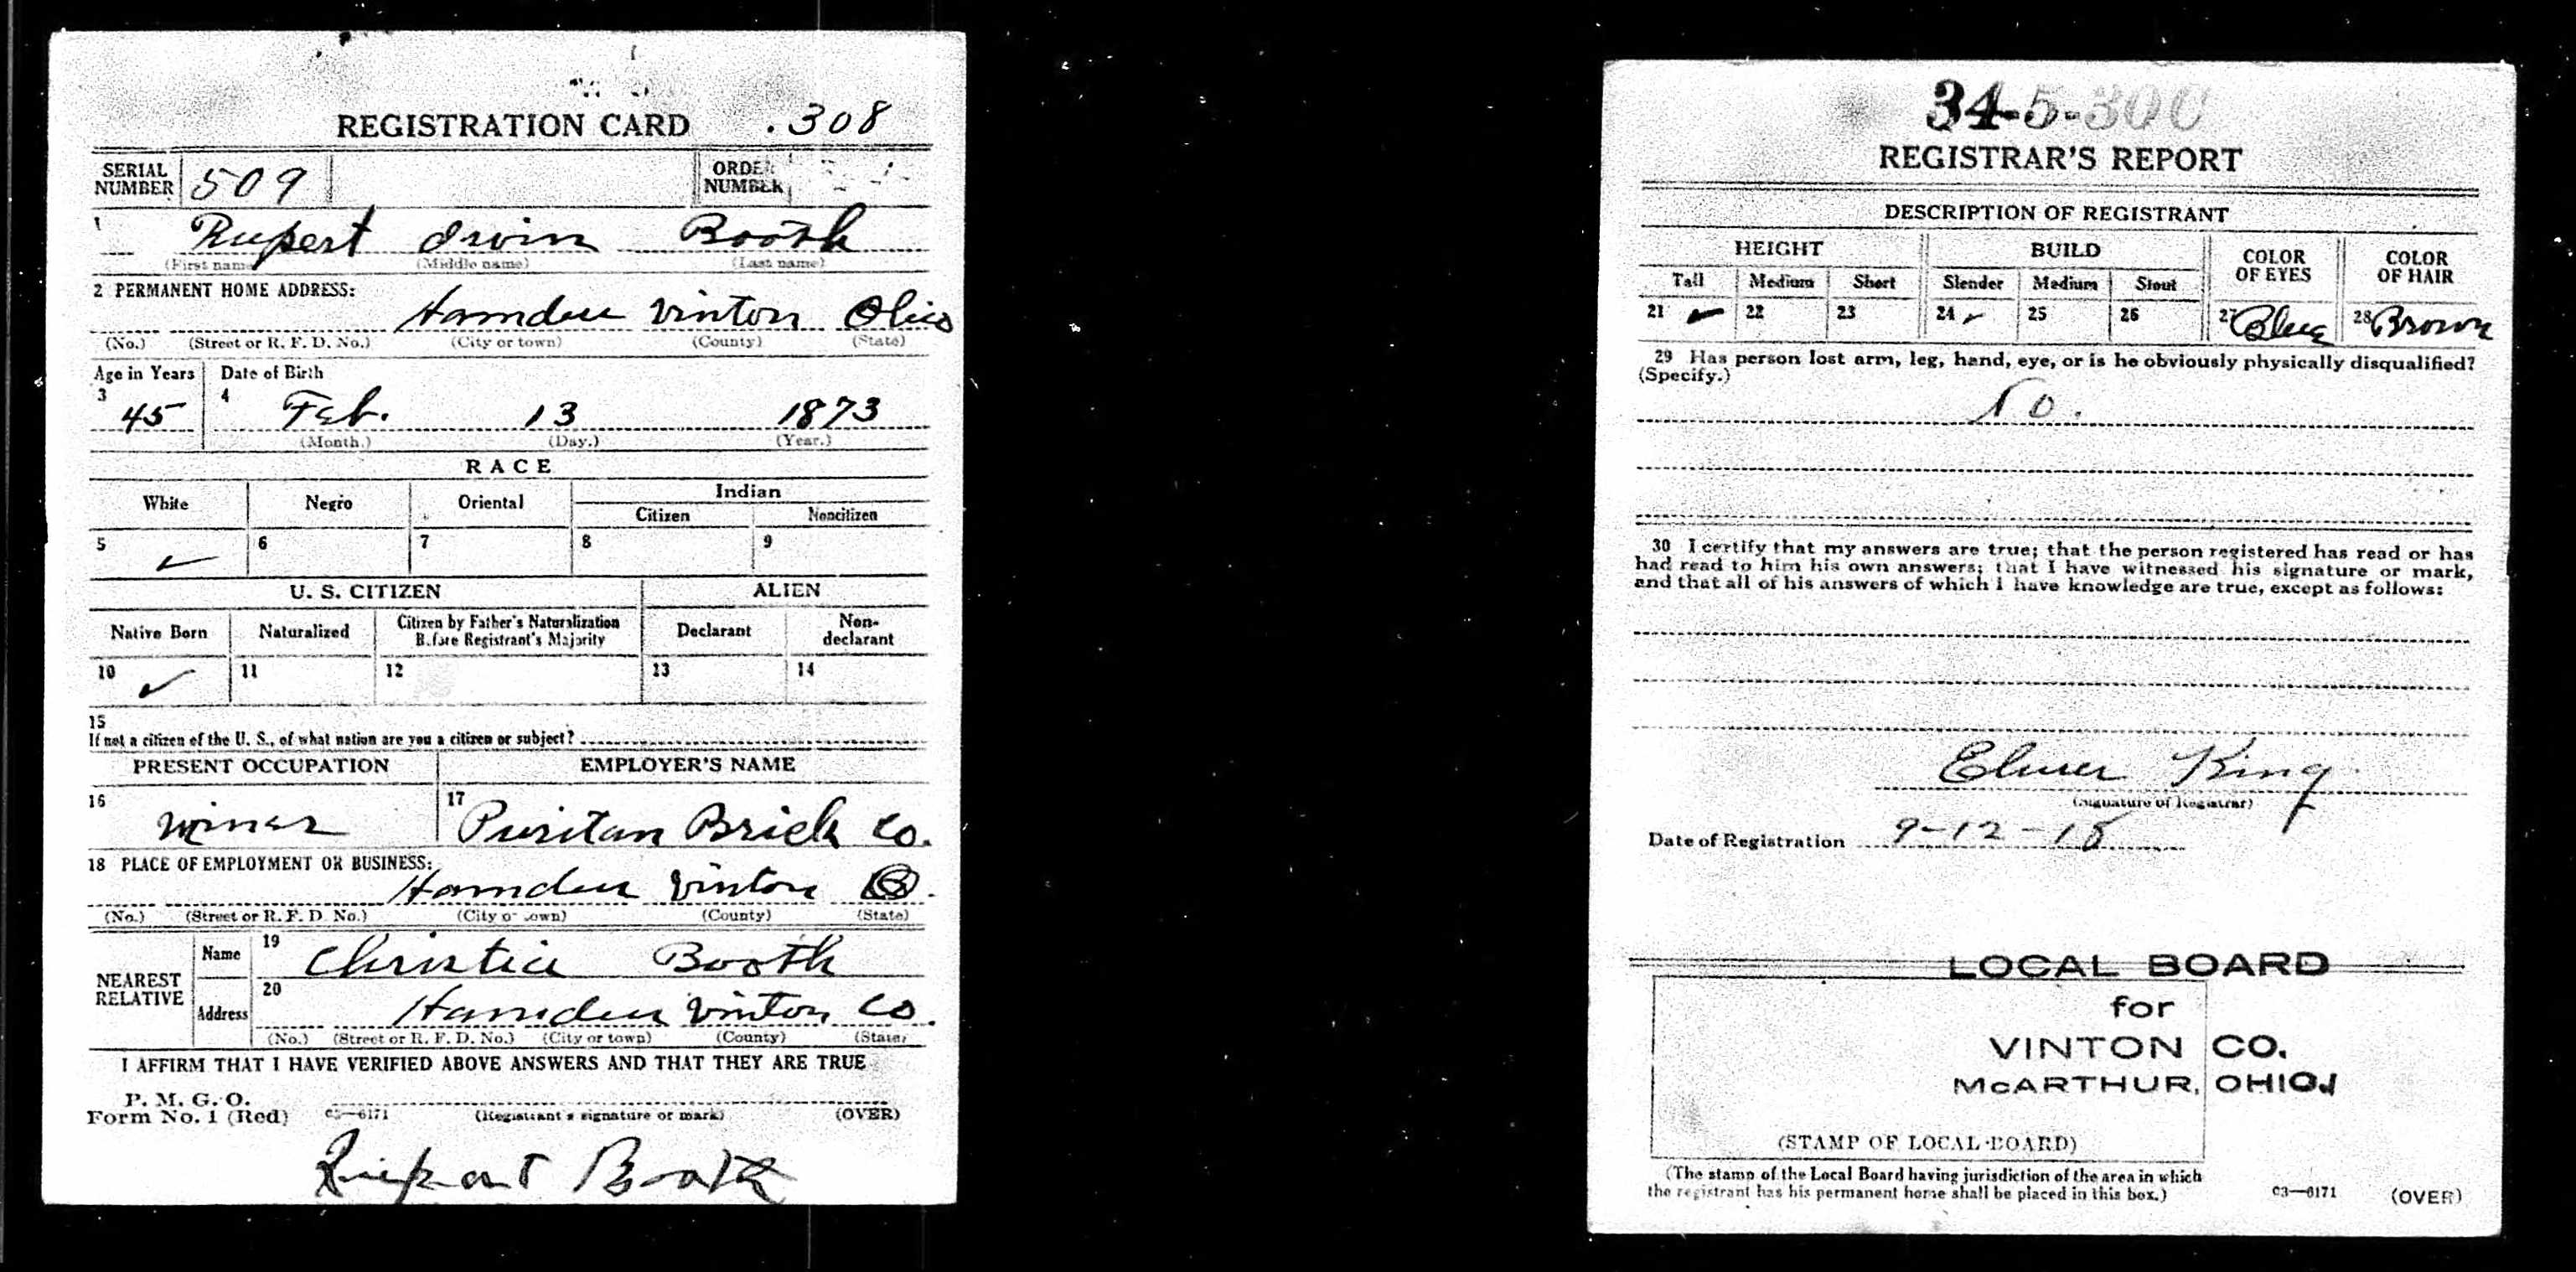 REGISTRATION CARD .308
SERIAL NUMBER 509 ORDER NUMBER
1 Rupert Irvin Booth
(First name) (Middle name) (Last name)
2 PERMANENT HOME ADDRESS:
Hamden Vinton Ohio
(No.) (Street or R. F. D. No.) (City or town) (County) (State)
Age in Years Date of Birth
3 45 4 Feb. 13 1873
(Month.) (Day.) (Year.)
RACE
White Negro Oriental Indian
Citizen Noncitizen
5 ✓ 6 7 8 9
U. S. CITIZEN ALIEN
Native Born Naturalized Citizen by Father's Naturalization Before Registrant's Majority Declarant Non-declarant
10 ✓ 11 12 13 14
15
If not a citizen of the U. S., of what nation are you a citizen or subject?
PRESENT OCCUPATION EMPLOYER'S NAME
16 Miner 17 Puritan Brick Co.
18 PLACE OF EMPLOYMENT OR BUSINESS:
Hamden Vinton O.
(No.) (Street or R. F. D. No.) (City or town) (County) (State)
NEAREST RELATIVE
Name 19 Christie Booth
Address 20 Hamden Vinton Co.
(No.) (Street or R. F. D. No.) (City or town) (County) (State)
I AFFIRM THAT I HAVE VERIFIED ABOVE ANSWERS AND THAT THEY ARE TRUE
P. M. G. O.
Form No. 1 (Red) C3—6171 (Registrant's signature or mark) (OVER)
Rupert Booth
34-5-300
REGISTRAR'S REPORT
DESCRIPTION OF REGISTRANT
HEIGHT BUILD COLOR OF EYES COLOR OF HAIR
Tall Medium Short Slender Medium Stout
21 ✓ 22 23 24 ✓ 25 26 27 Blue 28 Brown
29 Has person lost arm, leg, hand, eye, or is he obviously physically disqualified?
(Specify.)
No.
30 I certify that my answers are true; that the person registered has read or has
had read to him his own answers; that I have witnessed his signature or mark,
and that all of his answers of which I have knowledge are true, except as follows:
Elmer King
(Signature of Registrar)
Date of Registration 9-12-18
LOCAL BOARD
for
VINTON CO.
McARTHUR, OHIO.
(STAMP OF LOCAL BOARD)
(The stamp of the Local Board having jurisdiction of the area in which
the registrant has his permanent home shall be placed in this box.)
C3—6171 (OVER)